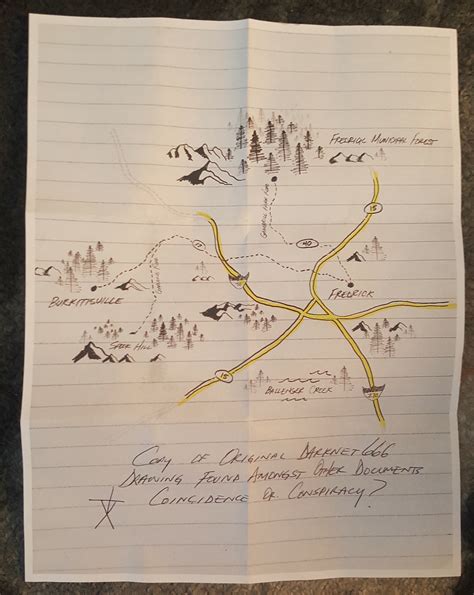 Fredrick Municipal Forest
15
40
17
Fredrick
Burkittsville
Spook Hill
15
Ballenger Creek
Copy of Original Darknet666
Drawing Found Amongst Other Documents
Coincidence or Conspiracy?